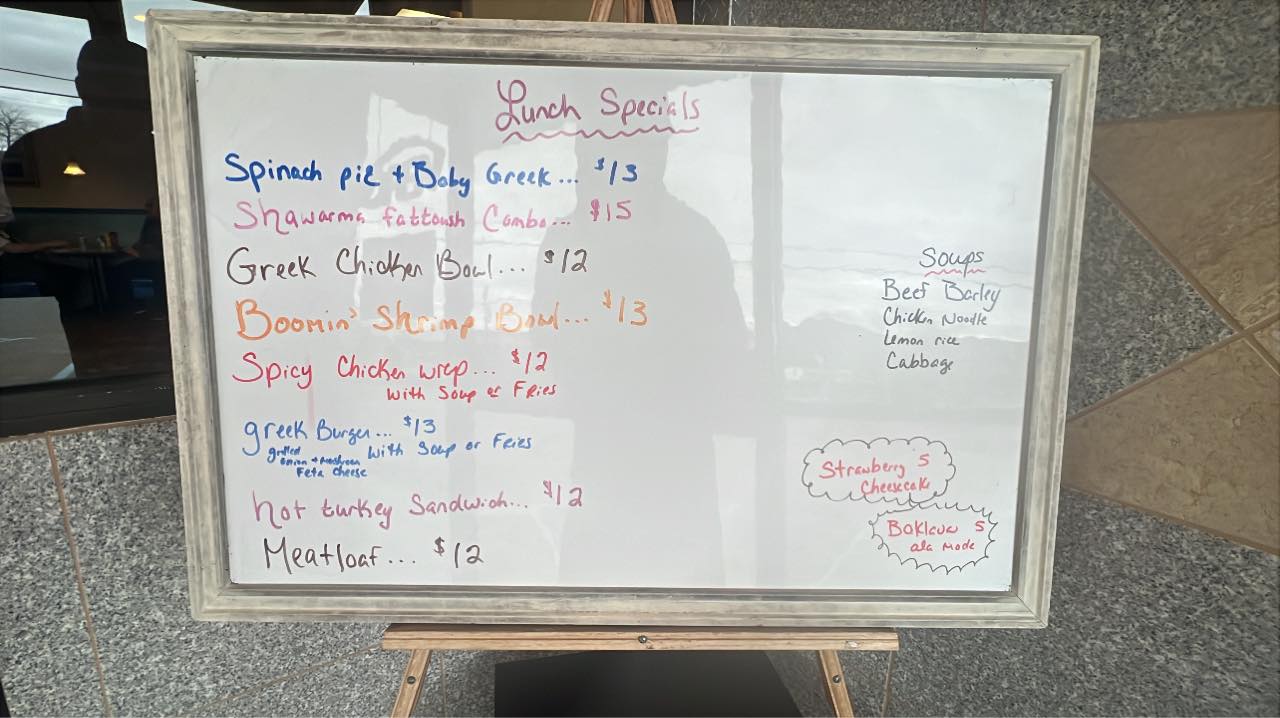 Lunch Specials
Spinach pie + Baby Greek... $13
Shawarma fattoush Combo... $15
Greek Chicken Bowl... $12
Boomin' Shrimp Bowl... $13
Spicy Chicken wrap... $12
with Soup or Fries
greek Burger... $13
grilled
onion + Mushroom
Feta Cheese
with Soup or Fries
hot turkey Sandwich... $12
Meatloaf... $12
Soups
Beef Barley
Chicken Noodle
Lemon rice
Cabbage
Strawberry 5
Cheesecake
Baklava 5
ala mode